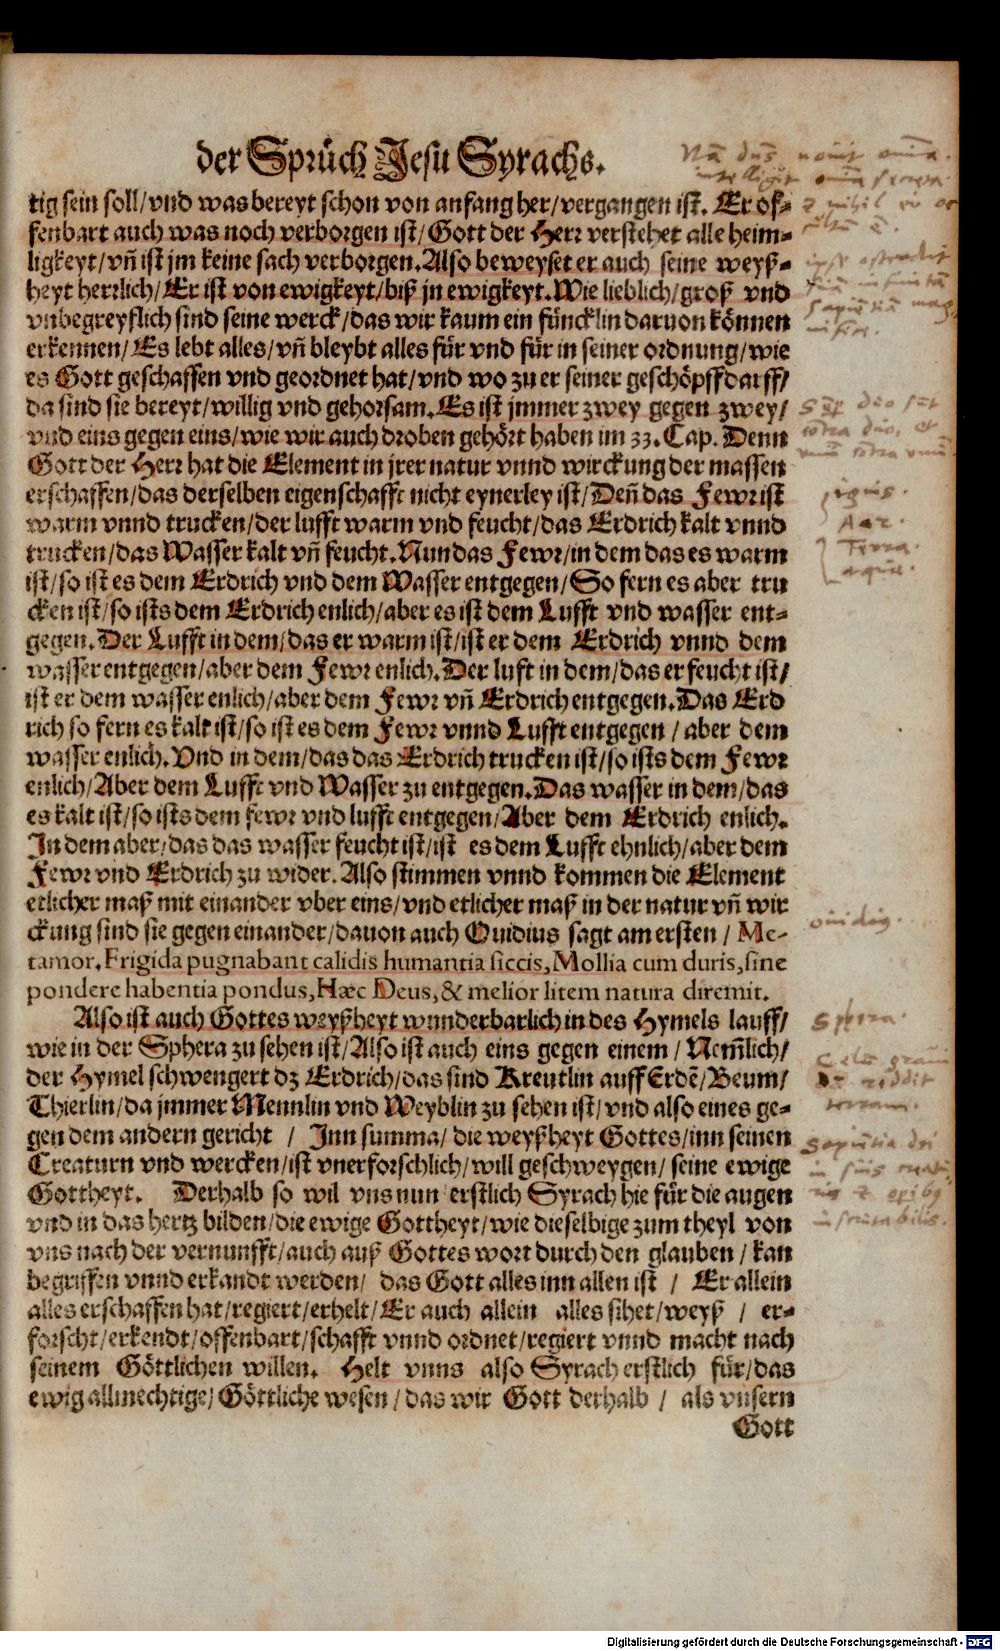 der Sprüch Jesu Syrachs.
tig sein soll/vnd was bereyt schon von anfang her/vergangen ist. Er of-
fenbart auch was noch verborgen ist/Gott der Herr verstehet alle heim-
ligkeyt/vñ ist jm keine sach verborgen. Also beweyset er auch seine weyß-
heyt herrlich/Er ist von ewigkeyt/biß jn ewigkeyt. Wie lieblich/groß vnd
vnbegreyflich sind seine werck/das wir kaum ein füncklin daruon können
erkennen/Es lebt alles/vñ bleybt alles für vnd für in seiner ordnung/wie
es Gott geschaffen vnd geordnet hat/vnd wo zu er seiner geschöpff darff/
da sind sie bereyt/willig vnd gehorsam. Es ist jmmer zwey gegen zwey/
vnd eins gegen eins/wie wir auch droben gehört haben im 33. Cap. Denn
Gott der Herr hat die Element in jrer natur vnnd wirckung der massen
erschaffen/das derselben eigenschafft nicht eynerley ist/Deñ das Fewr ist
warm vnnd trucken/der lufft warm vnd feucht/das Erdrich kalt vnnd
trucken/das Wasser kalt vñ feucht. Nun das Fewr/in dem das es warm
ist/so ist es dem Erdrich vnd dem Wasser entgegen/So fern es aber tru
cken ist/so ists dem Erdrich enlich/aber es ist dem Lufft vnd wasser ent-
gegen. Der Lufft in dem/das er warm ist/ist er dem Erdrich vnnd dem
wasser entgegen/aber dem Fewr enlich. Der luft in dem/das er feucht ist/
ist er dem wasser enlich/aber dem Fewr vñ Erdrich entgegen. Das Erd
rich so fern es kalt ist/so ist es dem Fewr vnnd Lufft entgegen/aber dem
wasser enlich. Vnd in dem/das das Erdrich trucken ist/so ists dem Fewr
enlich/Aber dem Lufft vnd Wasser zu entgegen. Das wasser in dem/das
es kalt ist/so ists dem fewr vnd lufft entgegen/Aber dem Erdrich enlich.
In dem aber/das das wasser feucht ist/ist es dem Lufft ehnlich/aber dem
Fewr vnd Erdrich zu wider. Also stimmen vnnd kommen die Element
etlicher maß mit einander vber eins/vnd etlicher maß in der natur vñ wir
ckung sind sie gegen einander/dauon auch Ouidius sagt am ersten/Me-
tamor. Frigida pugnabant calidis humantia siccis, Mollia cum duris, sine
pondere habentia pondus, Hæc Deus, & melior litem natura diremit.
Also ist auch Gottes weyßheyt wunderbarlich in des Hymels lauff/
wie in der Sphera zu sehen ist/Also ist auch eins gegen einem/Nem̃lich/
der Hymel schwengert dz Erdrich/das sind Kreutlin auff Erdẽ/Beum/
Thierlin/da jmmer Mennlin vnd Weyblin zu sehen ist/vnd also eines ge-
gen dem andern gericht/Inn summa/die weyßheyt Gottes/inn seinen
Creaturn vnd wercken/ist vnerforschlich/will geschweygen/seine ewige
Gottheyt. Derhalb so wil vns nun erstlich Syrach hie für die augen
vnd in das hertz bilden/die ewige Gottheyt/wie dieselbige zum theyl von
vns nach der vernunfft/auch auß Gottes wort durch den glauben/kan
begriffen vnnd erkandt werden/das Gott alles inn allen ist/Er allein
alles erschaffen hat/regiert/erhelt/Er auch allein alles sihet/weyß/er-
forscht/erkendt/offenbart/schafft vnnd ordnet/regiert vnnd macht nach
seinem Göttlichen willen. Helt vnns also Syrach erstlich für/das
ewig allmechtige/Göttliche wesen/das wir Gott derhalb/als vnsern
Gott
Nã dũs novit omĩa.
ignis.
Aer.
Terra.
aqua.
ouidiq.
Sphera.
terram.
Digitalisierung gefördert durch die Deutsche Forschungsgemeinschaft - DFG